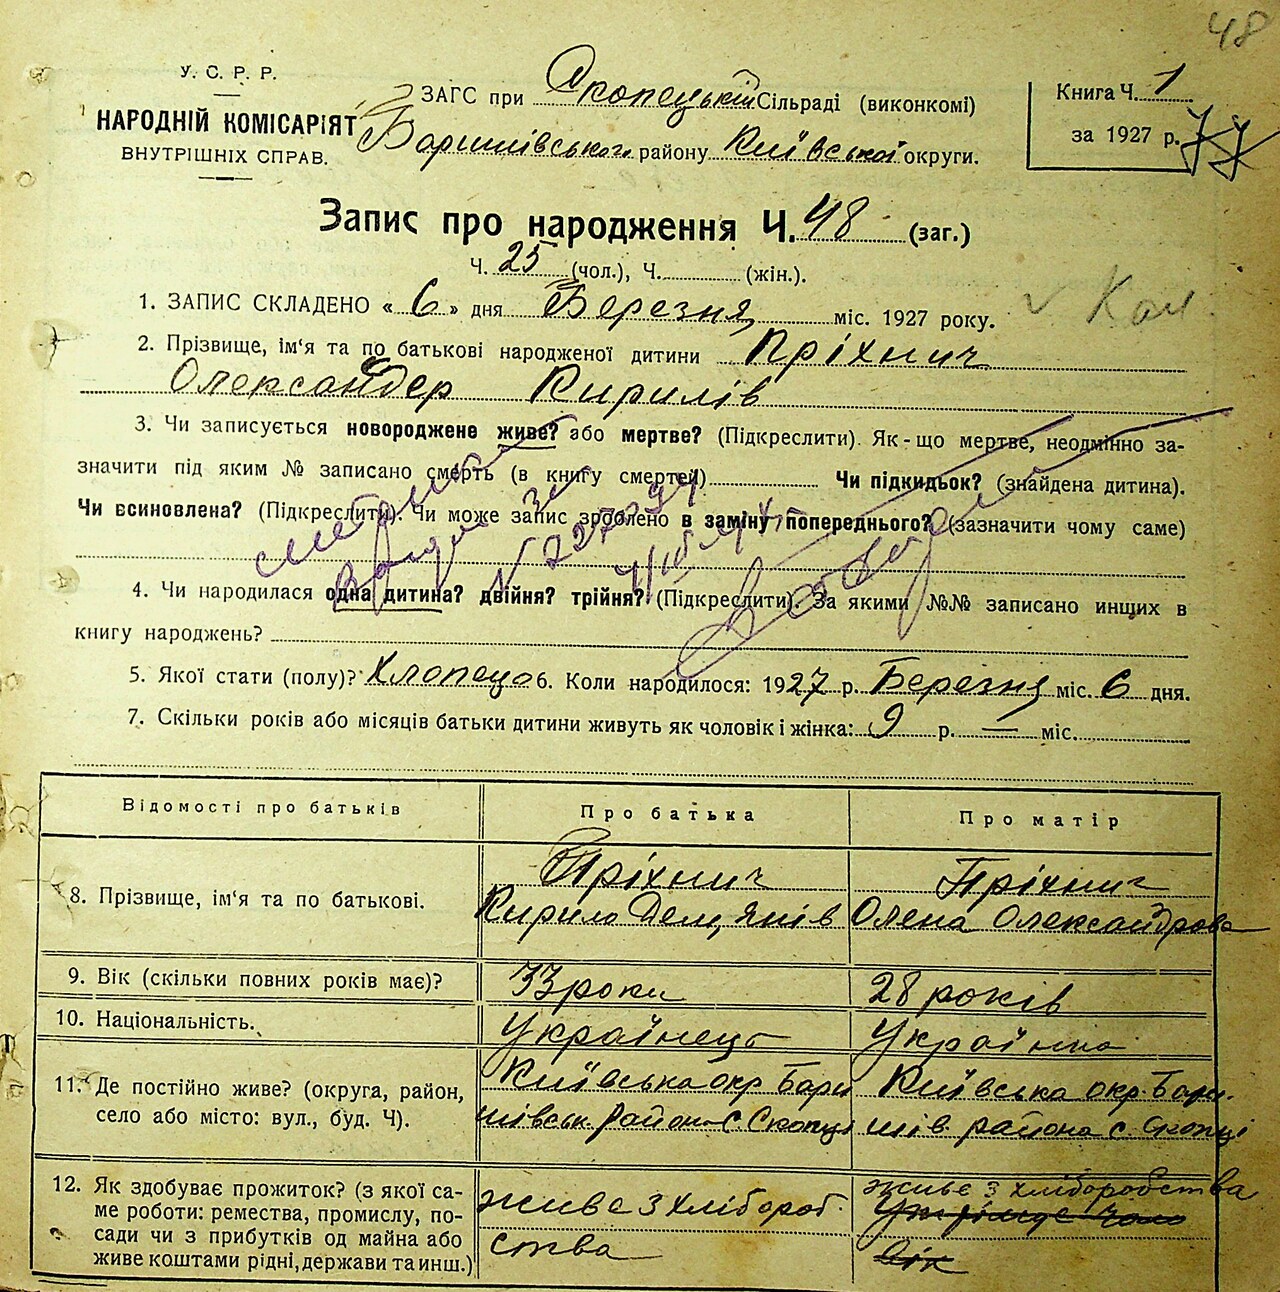 48
У. С. Р. Р.
НАРОДНІЙ КОМІСАРІЯТ
ВНУТРІШНІХ СПРАВ.
ЗАГС при Скопецькій Сільраді (виконкомі)
Баришівського району Київської округи.
Книга Ч. 1
за 1927 р.
Запис про народження Ч. 48 (заг.)
Ч. 25 (чол.), Ч. (жін.).
1. ЗАПИС СКЛАДЕНО « 6 » дня Березня міс. 1927 року.
2. Прізвище, ім'я та по батькові народженої дитини Пріхнич
Олександер Кирилів
3. Чи записується новороджене живе? або мертве? (Підкреслити). Як-що мертве, неодмінно за-
значити під яким № записано смерть (в книгу смертей) Чи підкидьок? (знайдена дитина).
Чи всиновлена? (Підкреслити). Чи може запис зроблено в заміну попереднього? (зазначити чому саме)
4. Чи народилася одна дитина? двійня? трійня? (Підкреслити). За якими №№ записано инщих в
книгу народжень?
5. Якої стати (полу)? Хлопець 6. Коли народилося: 1927 р. Березня міс. 6 дня.
7. Скільки років або місяців батьки дитини живуть як чоловік і жінка: 9 р. — міс.
Відомості про батьків Про батька Про матір
8. Прізвище, ім'я та по батькові. Пріхнич Пріхнич
Кирило Демянів Олена Олександрова
9. Вік (скільки повних років має)? 33 роки 28 років
10. Національність. Українець Українка
11. Де постійно живе? (округа, район, Київська окр. Бари Київська окр. Бари-
село або місто: вул., буд. Ч). шівськ. район с Скопці шів. района с. Скопці
12. Як здобуває прожиток? (з якої са- живе з хлібороб. живе з хліборобства
ме роботи: ремества, промислу, по- ства
сади чи з прибутків од майна або
живе коштами рідні, держави та инш.)